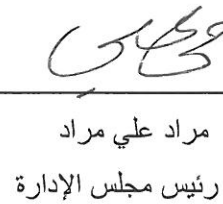 مراد علي مراد
رئيس مجلس الإدارة